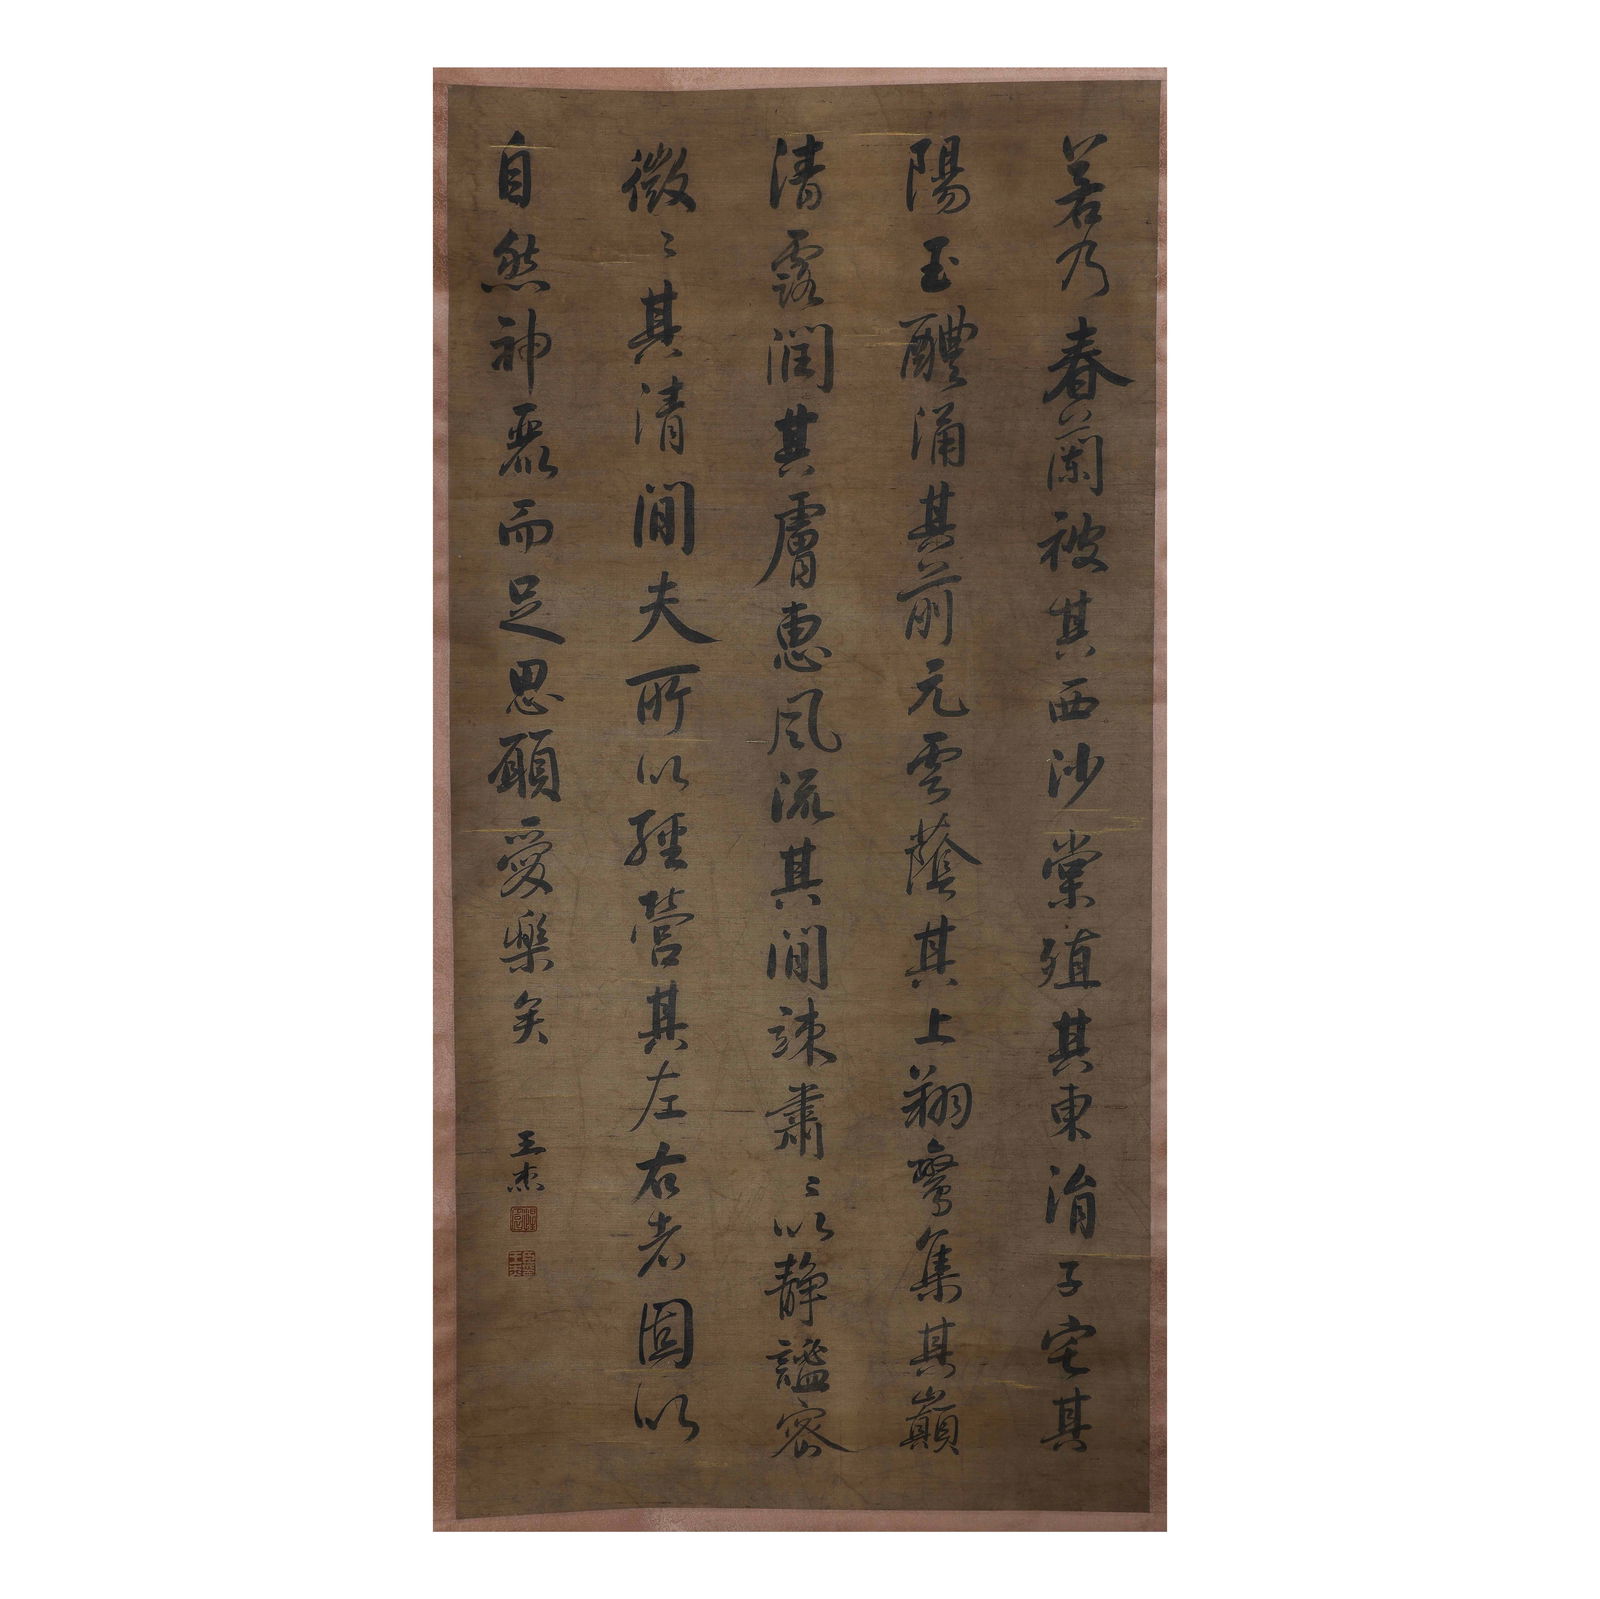 若乃春蘭被其西沙棠殖其東涓子宅其
陽玉醴涌其前元雲蔭其上翔鸞集其巔
清露潤其膚惠風流其閒竦肅〻以靜謐密
微〻其清閒夫所以經營其左右者固以
自然神麗而足思願愛樂矣
王杰